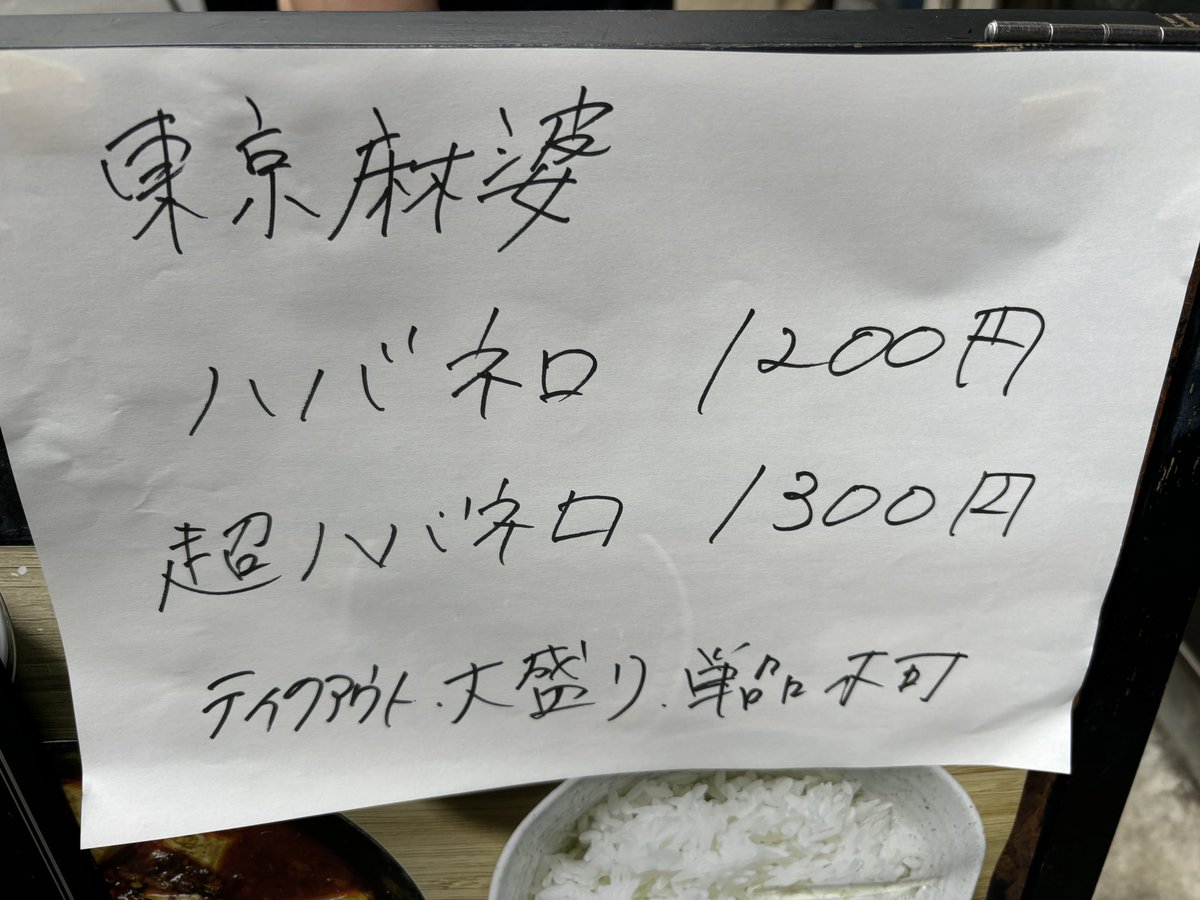 東京麻婆
ハバネロ 1200円
超ハバネロ 1300円
テイクアウト.大盛り.単品不可